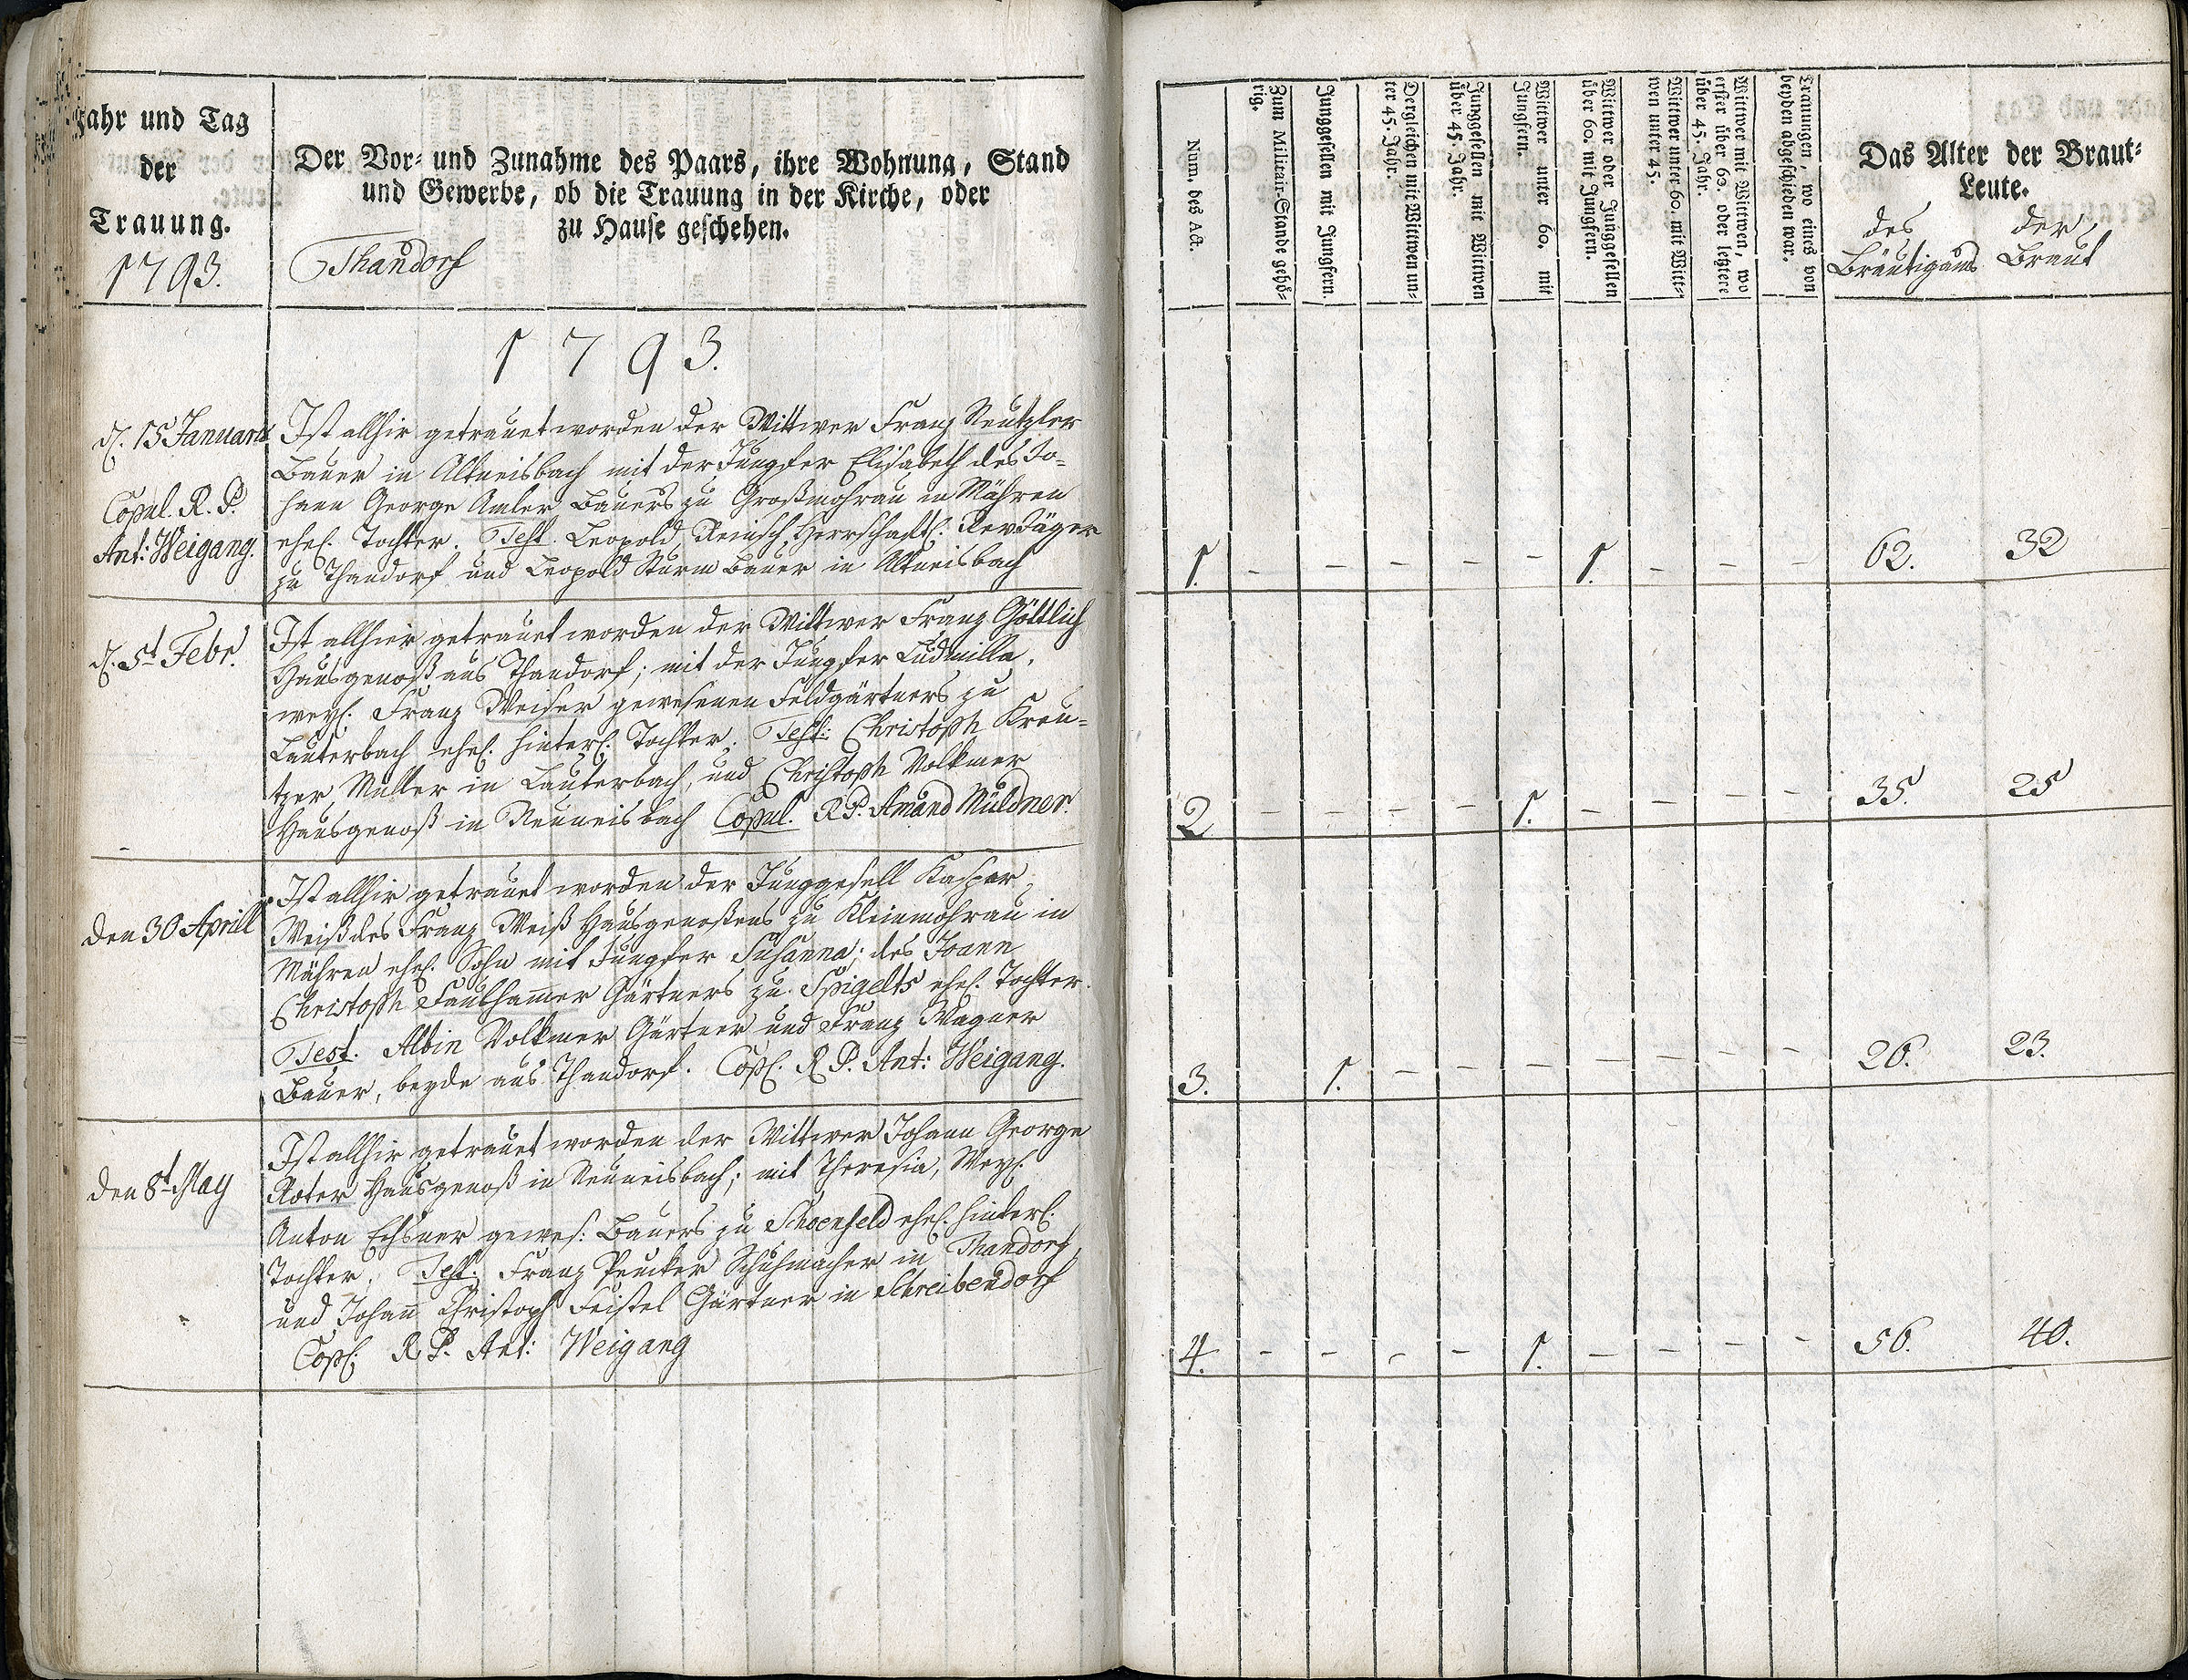 Jahr und Tag
der
Trauung.
1793.
Der Vor- und Zunahme des Paars, ihre Wohnung, Stand
und Gewerbe, ob die Trauung in der Kirche, oder
zu Hause geschehen.
Thandorf
1793.
d. 15 Januarii
Copul. R. P.
Ant: Weigang.
Ist allhir getrauet worden der Wittwer Franz Neutzler
Bauer in Altneisbach mit der Jungfer Elisabeth des Jo-
hann George Amler Bauers zu Großmohrau in Mähren
ehel. Tochter. Test. Leopold Reinsch Herrschaftl: RevJäger
zu Thandorf und Leopold Sturm Bauer in Altneisbach
d. 5t Febr.
Ist allhier getrauet worden der Wittwer Franz Göttlich
Hausgenoß aus Thandorf; mit der Jungfer Ludmilla,
weyl. Franz Weiser gewesenen Feldgärtners zu
Lauterbach ehel. hinterl. Tochter. Test: Christoph Kreu-
tzer Müller in Lauterbach, und Christoph Volkmer
Hausgenoß in Neuneisbach Copul. R P. Amand Müldner.
den 30 Aprill
Ist allhir getrauet worden der Junggesell Kaspar,
Weiß des Franz Weiß Hausgenoßens zu Kleinmohrau in
Mähren ehel. Sohn mit Jungfer Susanna; des Joann
Christoph Faulhammer Gärtners zu Spigelts ehel. Tochter.
Test. Albin Volkmer Gärtner und Franz Wagner
Bauer, beyde aus Thandorf. Copl. R P. Ant: Weigang.
den 8t May
Ist allhir getrauet worden der Wittwer Johann George
Roter Hausgenoß in Neuneisbach; mit Theresia, Weyl.
Anton Echsner gewes: Bauers zu Schoenfeld ehel. hinterl.
Tochter. Test. Franz Peucker Schuhmacher in Thandorf
und Johann Christoph Feistel Gärtner in Schreibendorf
Copl. R P. Ant: Weigang
Num. des Act.
Zum Militair-Stande gehö-
rig.
Junggesellen mit Jungfern.
Dergleichen mit Wittwen un-
ter 45. Jahr.
Junggesellen mit Wittwen
über 45. Jahr.
Wittwer unter 60. mit
Jungfern.
Wittwer oder Junggesellen
über 60. mit Jungfern.
Wittwer unter 60. mit Witt-
wen unter 45.
Wittwer mit Wittwen, wo
erster über 60. oder letztere
über 45. Jahr.
Trauungen, wo eines von
beyden abgeschieden war.
Das Alter der Braut-
Leute.
des
Bräutigams
der
Braut
1. - - - - - 1. - - - 62. 32
2 - - - - 1. - - - - 35. 25
3. 1. - - - - - - - 26. 23.
4. - - - - 1. - - - - 56. 40.